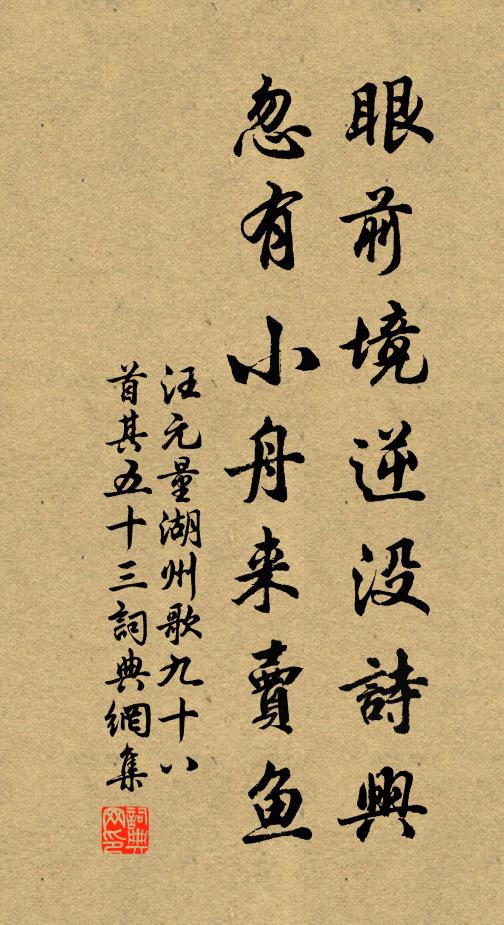 眼前境逆没詩興
忽有小舟来賣鱼
汪元量湖州歌九十八
首其五十三詞典網集
詞典
网印